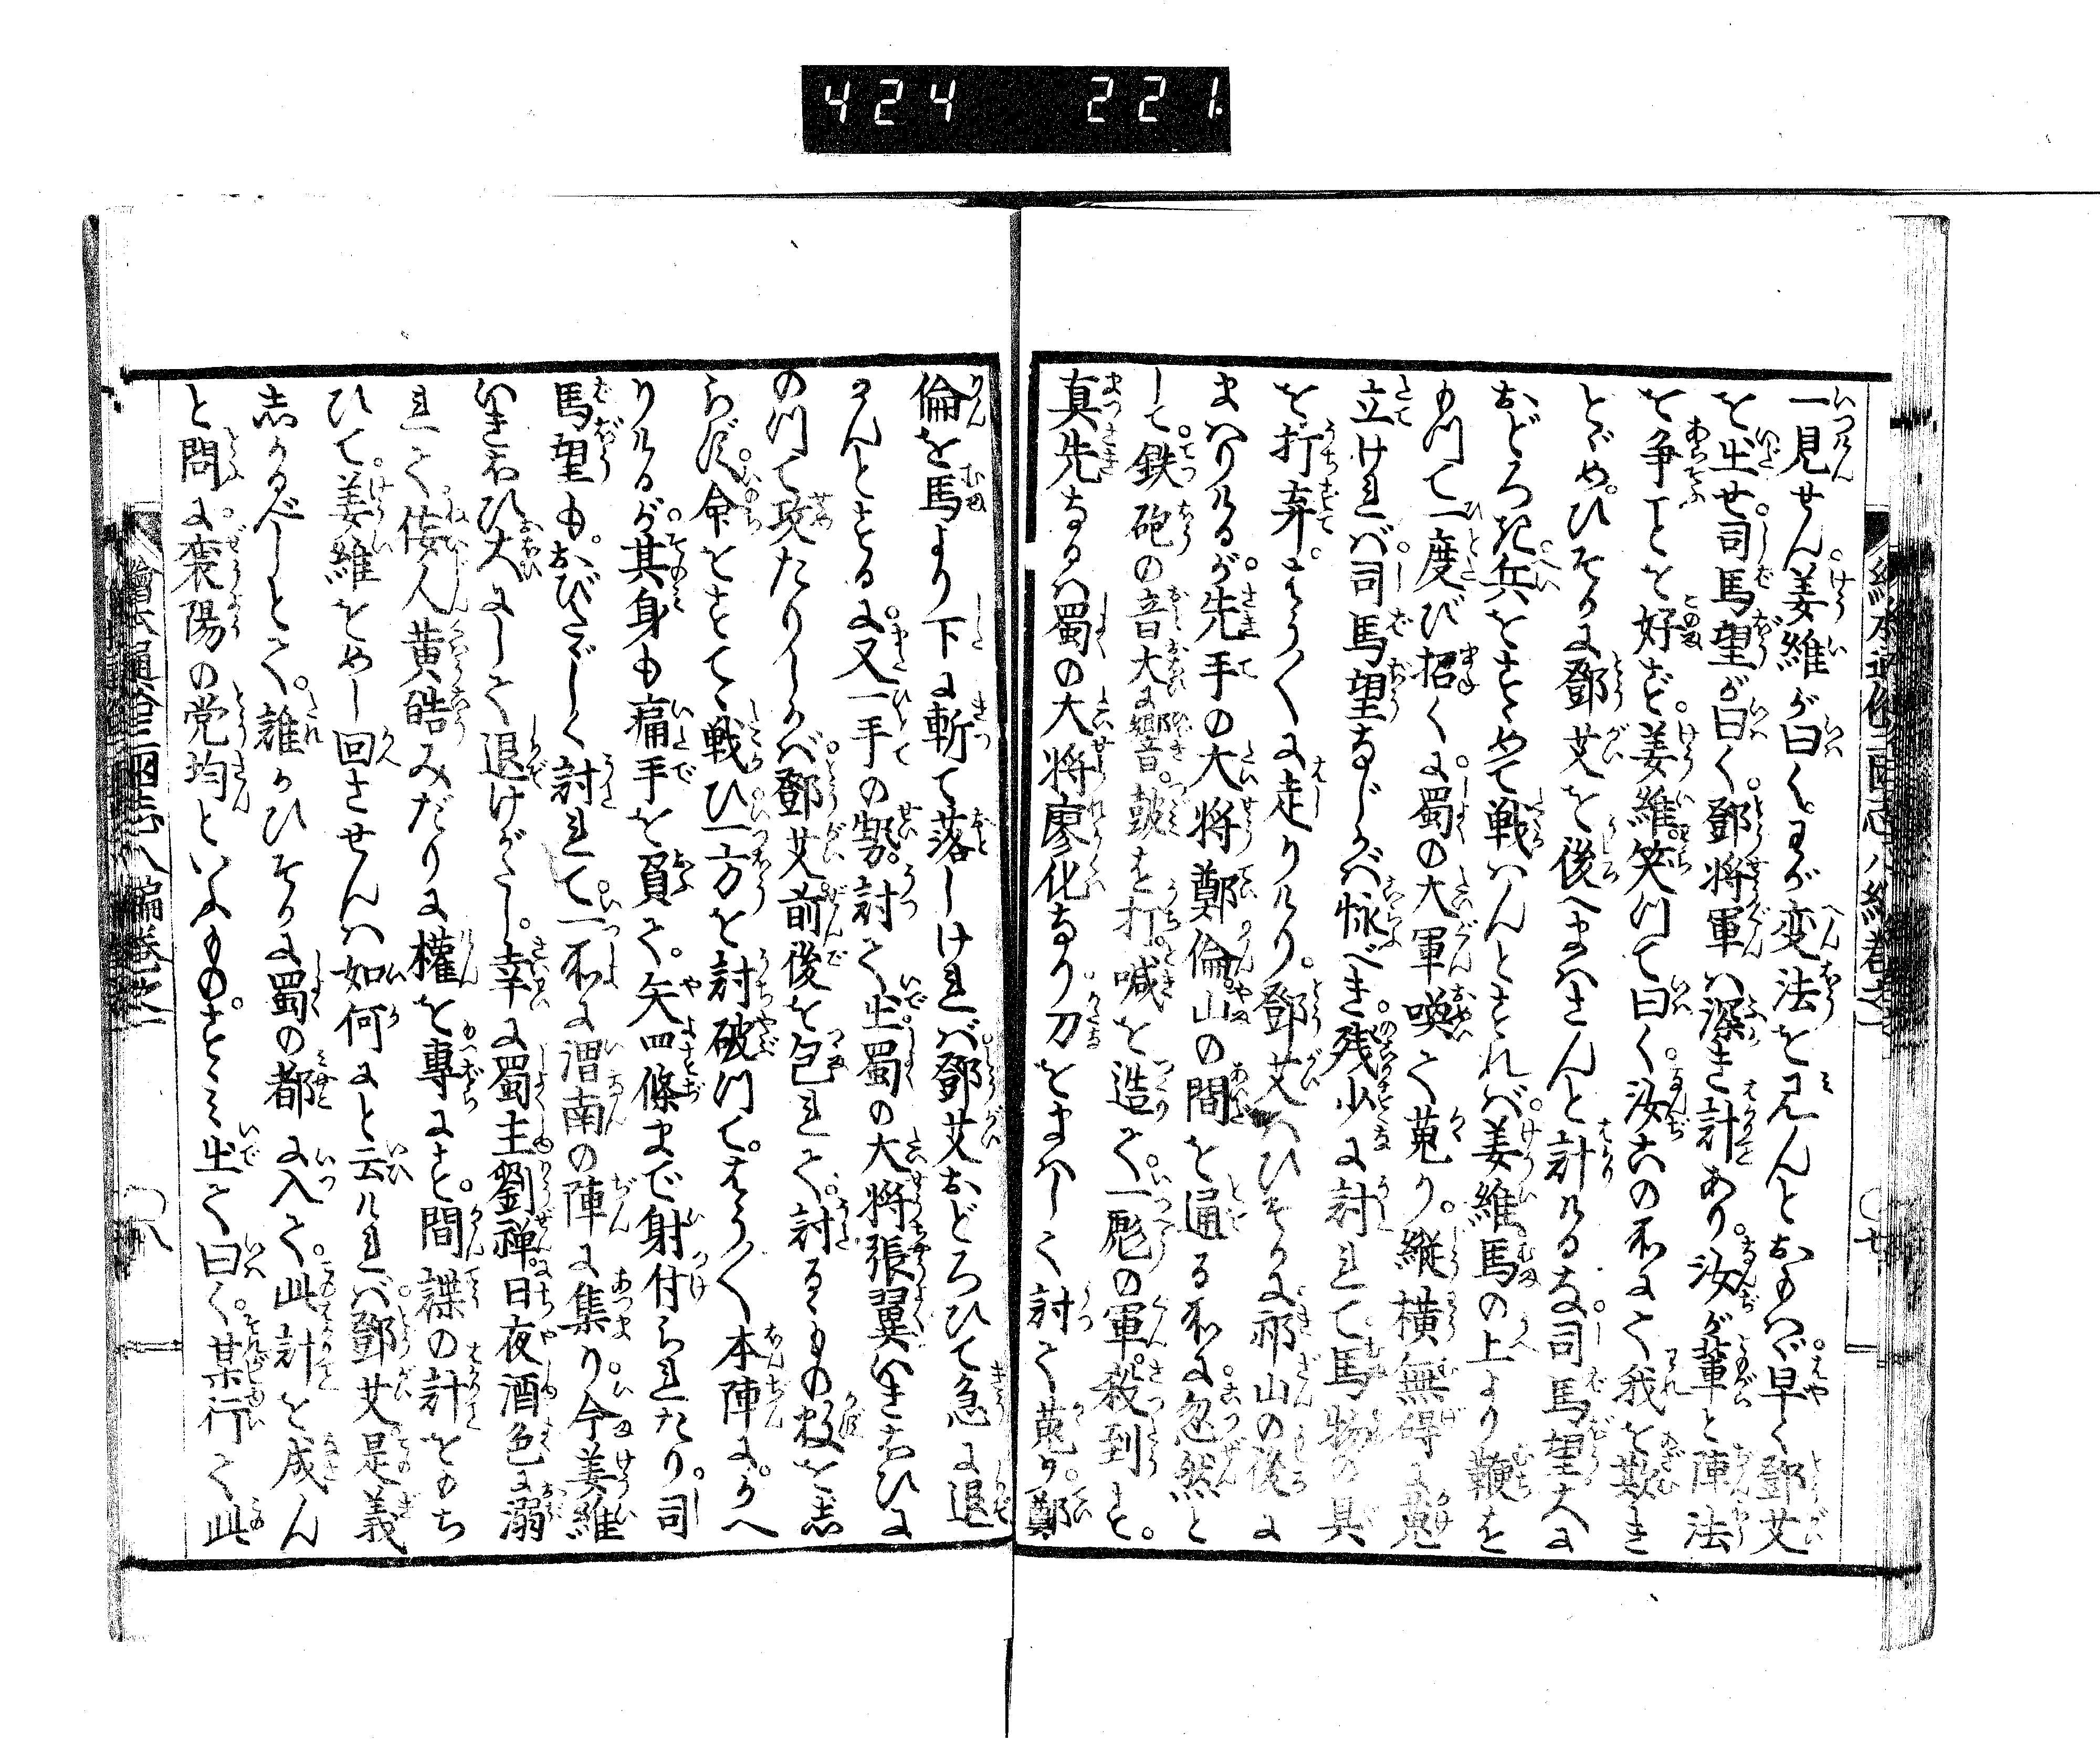 424 221
一見せん姜維が曰くわが変法を見んとおもハヾ早く鄧艾
を出せ司馬望が曰く鄧将軍ハ深き計あり汝が輩と陣法
を争ことを好まず姜維笑つて曰く汝らの
とゞめひそかに鄧艾を後へまハさんと計るな司馬望大に
おどろき兵をすゝめて戦ハんとすれバ姜維馬の上より鞭を
もつて一度び招くに蜀の大軍喚て蒐り縦横無碍に蒐
立けれバ司馬望なじかバ怺べき残少に討れて馬物の具
を打弃はう〳〵に走りけり鄧艾ハひそかに祁山の後に
まハりけるが先手の大将鄭倫山の間を通る所に忽然と
して鉄砲の音大に響き鼓を打喊を造て一彪の軍殺到す
真先なるハ蜀の大将廖化なり刀をまハして討て蒐り鄭
倫を馬より下に斬て落しけれバ鄧艾おどろひて急に退
かんとするに又一手の勢討て出蜀の大将張翼いきほひに
のつて攻たりしかバ鄧艾前後を包れて討るゝもの数を志
らず命をすてゝ戦ひ一方を討破つてはう〳〵本陣にかへ
りけるが其身も痛手を負て矢四條まで射付られたり司
馬望もおびたゞしく討れて一所に渭南の陣に集り今姜維
いきほひ大にして退けがたし幸に蜀主劉禅日夜酒色に溺
れて佞人黄皓みだりに権を専にす間諜の計をもち
ひて姜維をめし回させんハ如何にと云けれバ鄧艾是義
志かるべしとて誰かひそかに蜀の都に入て此計を成ん
と問に襄陽の党均といふものすゝミ出て曰く某行て此